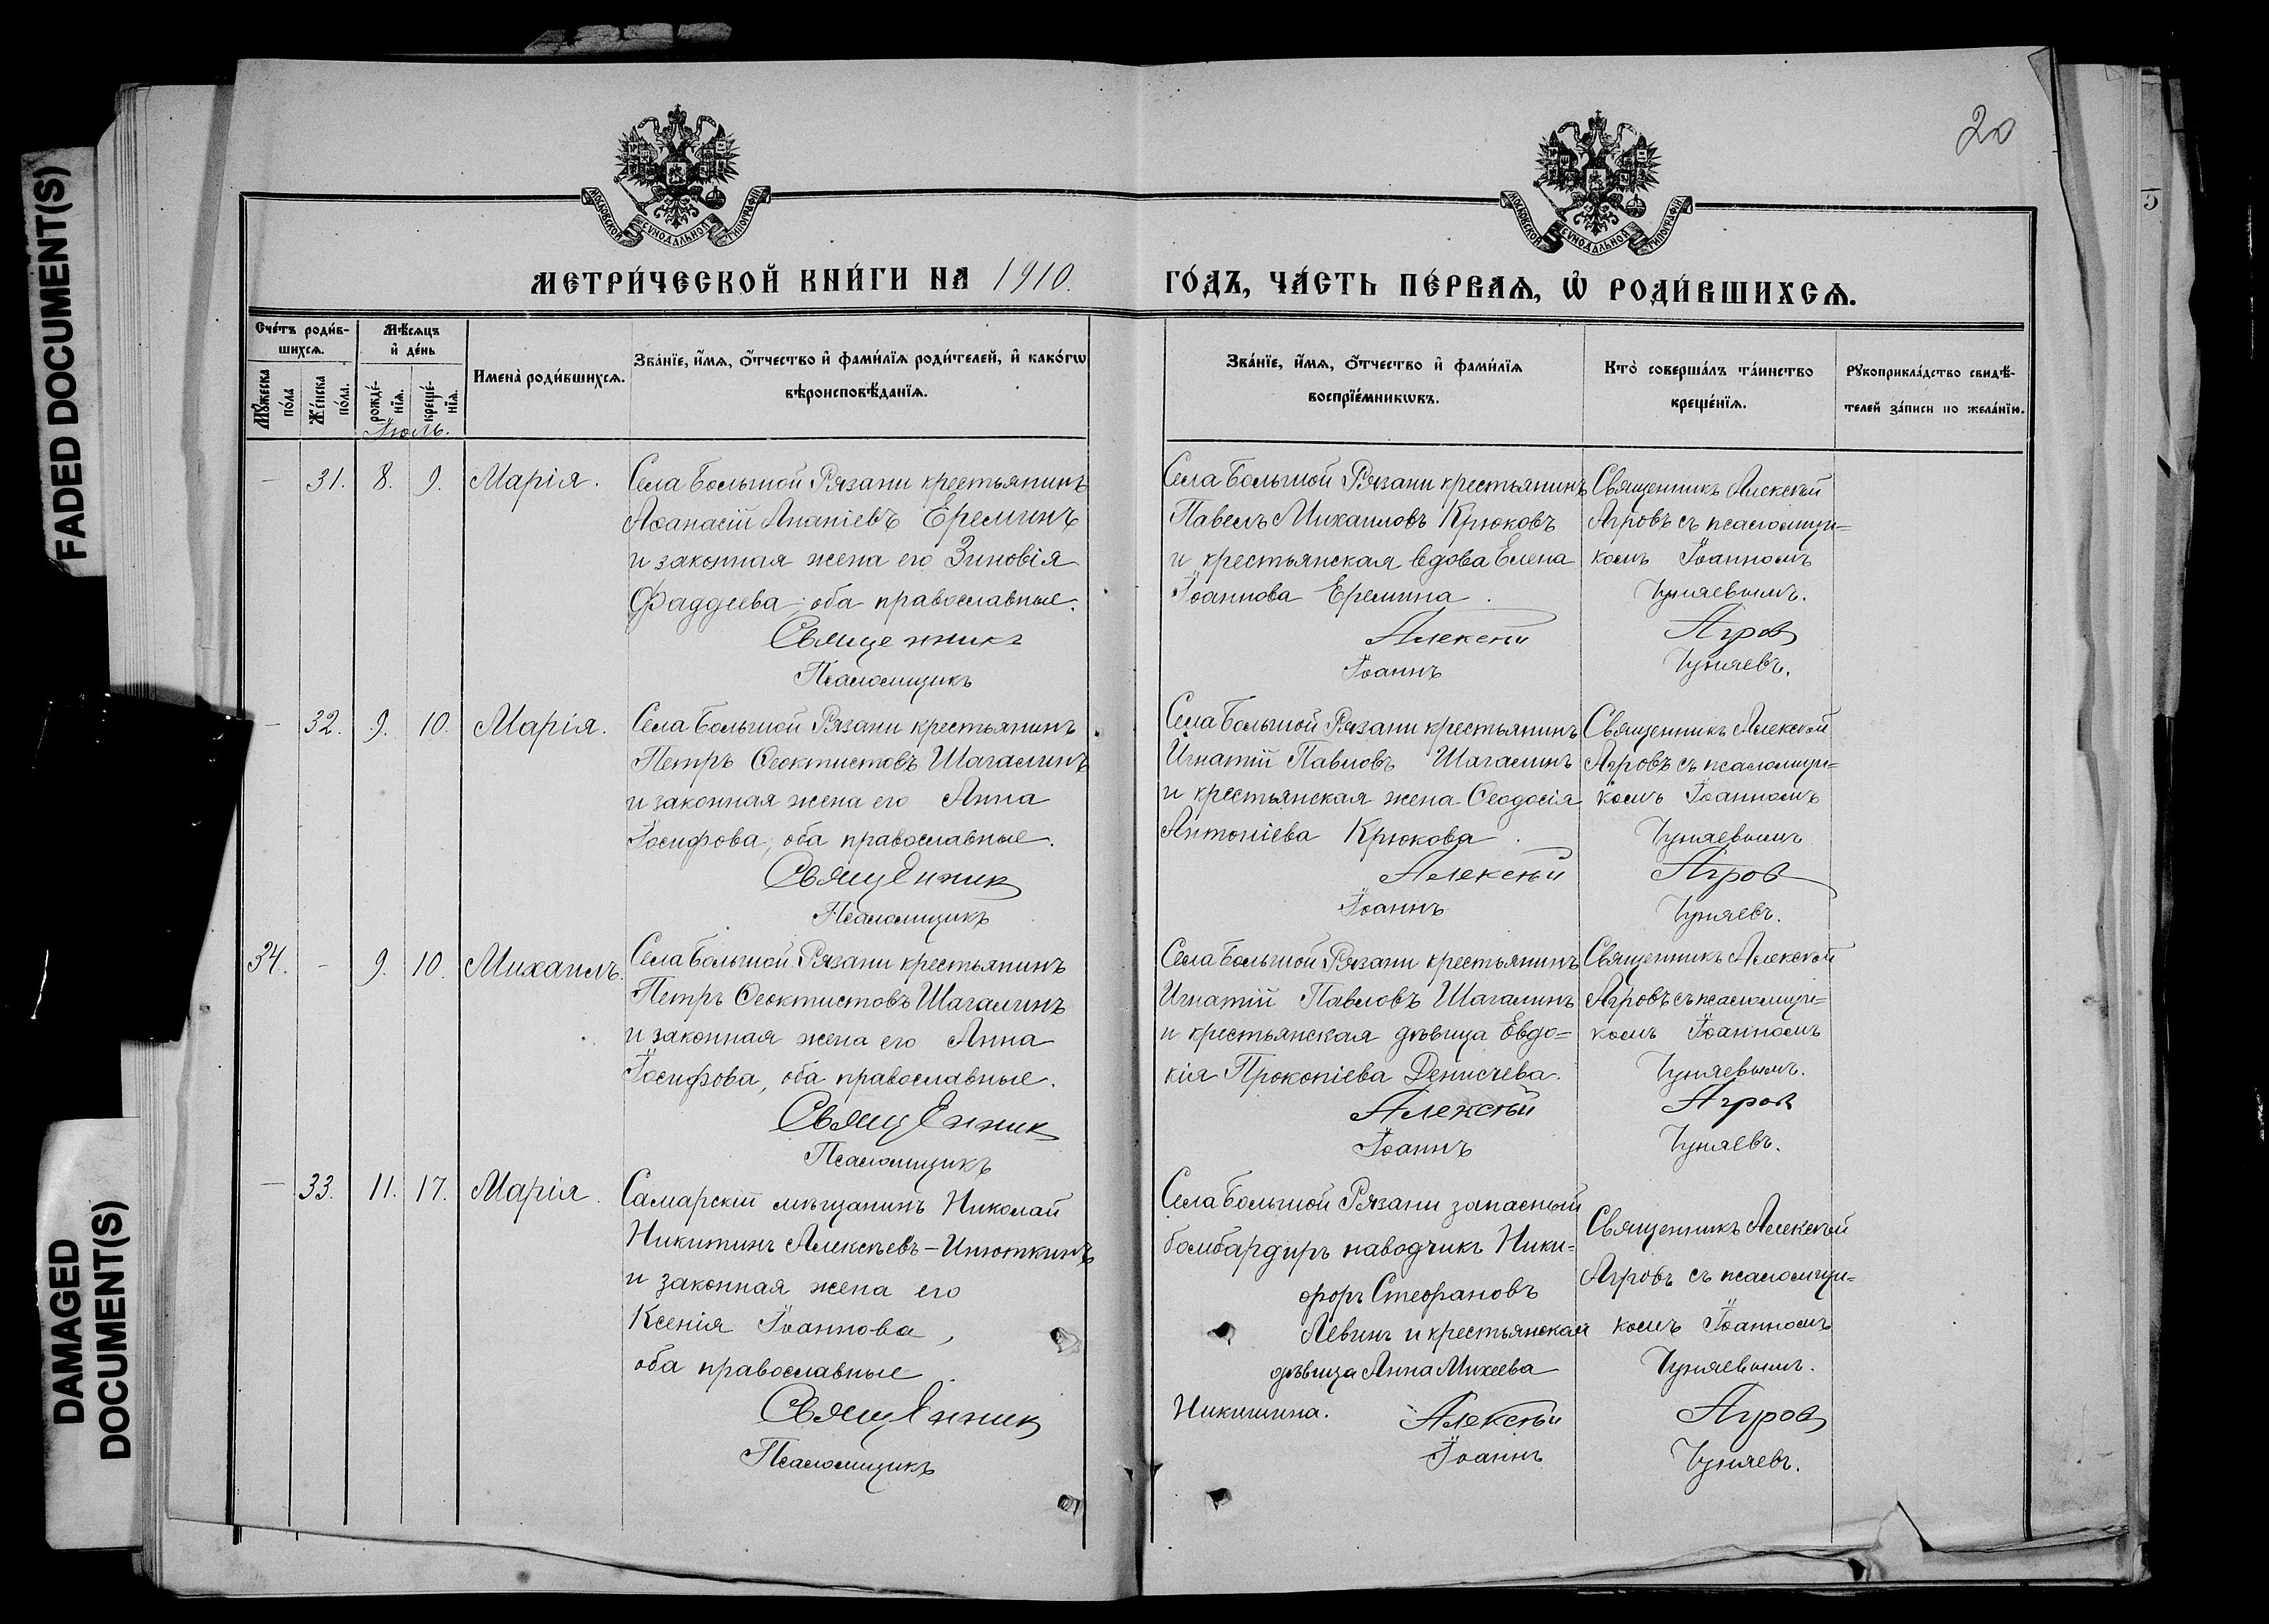 FADED DOCUMENT(S)
DAMAGED
DOCUMENT(S)
20
5
МОСКОВСКОЙ СУНОДАЛЬНОЙ ТИПОГРАФІИ
МОСКОВСКОЙ СУНОДАЛЬНОЙ ТИПОГРАФІИ
МЕТРИ́ЧЕСКОЙ КНИ́ГИ НА 1910. ГО́ДЪ, ЧА́СТЬ ПЕ́РВАѦ, Ѡ҆ РОДИ́ВШИХСѦ.
Сче́тъ роди́в-
шихсѧ.
Мꙋ́жеска по́ла
Же́нска по́ла.
Мѣ́сѧцъ
и҆ де́нь
рожде́-
нїѧ.
креще́-
нїѧ.
Июль.
Имена̀ роди́вшихсѧ.
Зва́нїе, и҆́мѧ, ѻ҆́тчество и҆ фами́лїѧ роди́телей, и҆ како́гѡ
вѣроисповѣ́данїѧ.
Зва́нїе, и҆́мѧ, ѻ҆́тчество и҆ фами́лїѧ
воспрїе́мникѡвъ.
Кто̀ соверша́лъ та́инство
креще́нїѧ.
Рꙋкоприкла́дство свидѣ́-
телей за́писи по жела́нїю.
— 31. 8. 9. Марія.
Села Большой Рязани крестьянинъ
Аѳанасій Ананіевъ Ереминъ
и законная жена его Зиновія
Фаддеева; оба православные.
Священникъ
Псаломщикъ
Села Большой Рязани крестьянинъ
Павелъ Михаиловъ Крюковъ
и крестьянская вдова Елена
Іоаннова Еремина.
Алексѣй
Іоаннъ
Священникъ Алексѣй
Агровъ съ псаломщи=
комъ Іоанномъ
Чуняевымъ.
Агров
Чуняевъ.
— 32. 9. 10. Марія.
Села Большой Рязани крестьянинъ
Петръ Ѳеоктистовъ Шагалинъ
и законная жена его Анна
Іосифова; оба православные.
Священник
Псаломщикъ
Села Большой Рязани крестьянинъ
Игнатій Павловъ Шагалинъ
и крестьянская жена Ѳеодосія
Антоніева Крюкова.
Алексѣй
Іоаннъ
Священникъ Алексѣй
Агровъ съ псаломщи=
комъ Іоанномъ
Чуняевымъ
Агров
Чуняевъ.
34. — 9. 10. Михаилъ.
Села Большой Рязани крестьянинъ
Петръ Ѳеоктистовъ Шагалинъ
и законная жена его Анна
Іосифова, оба православные.
Священник
Псаломщикъ
Села Большой Рязани крестьянинъ
Игнатій Павловъ Шагалинъ
и крестьянская дѣвица Евдо=
кія Прокопіева Денисчева.
Алексѣй
Іоаннъ
Священникъ Алексѣй
Агровъ съ псаломщи=
комъ Іоанномъ
Чуняевымъ.
Агров
Чуняевъ.
— 33. 11. 17. Марія.
Самарскій мѣщанинъ Николай
Никитинъ Алексѣевъ-Инюткинъ
и законная жена его
Ксенія Іоаннова,
оба православные.
Священник
Псаломщикъ
Села Большой Рязани запасный
бомбардиръ наводчикъ Ники=
форъ Стефановъ
Левинъ и крестьянская
дѣвица Анна Михеева
Никишина. Алексѣй
Іоаннъ
Священникъ Алексѣй
Агровъ съ псаломщи=
комъ Іоанномъ
Чуняевымъ.
Агров
Чуняевъ.